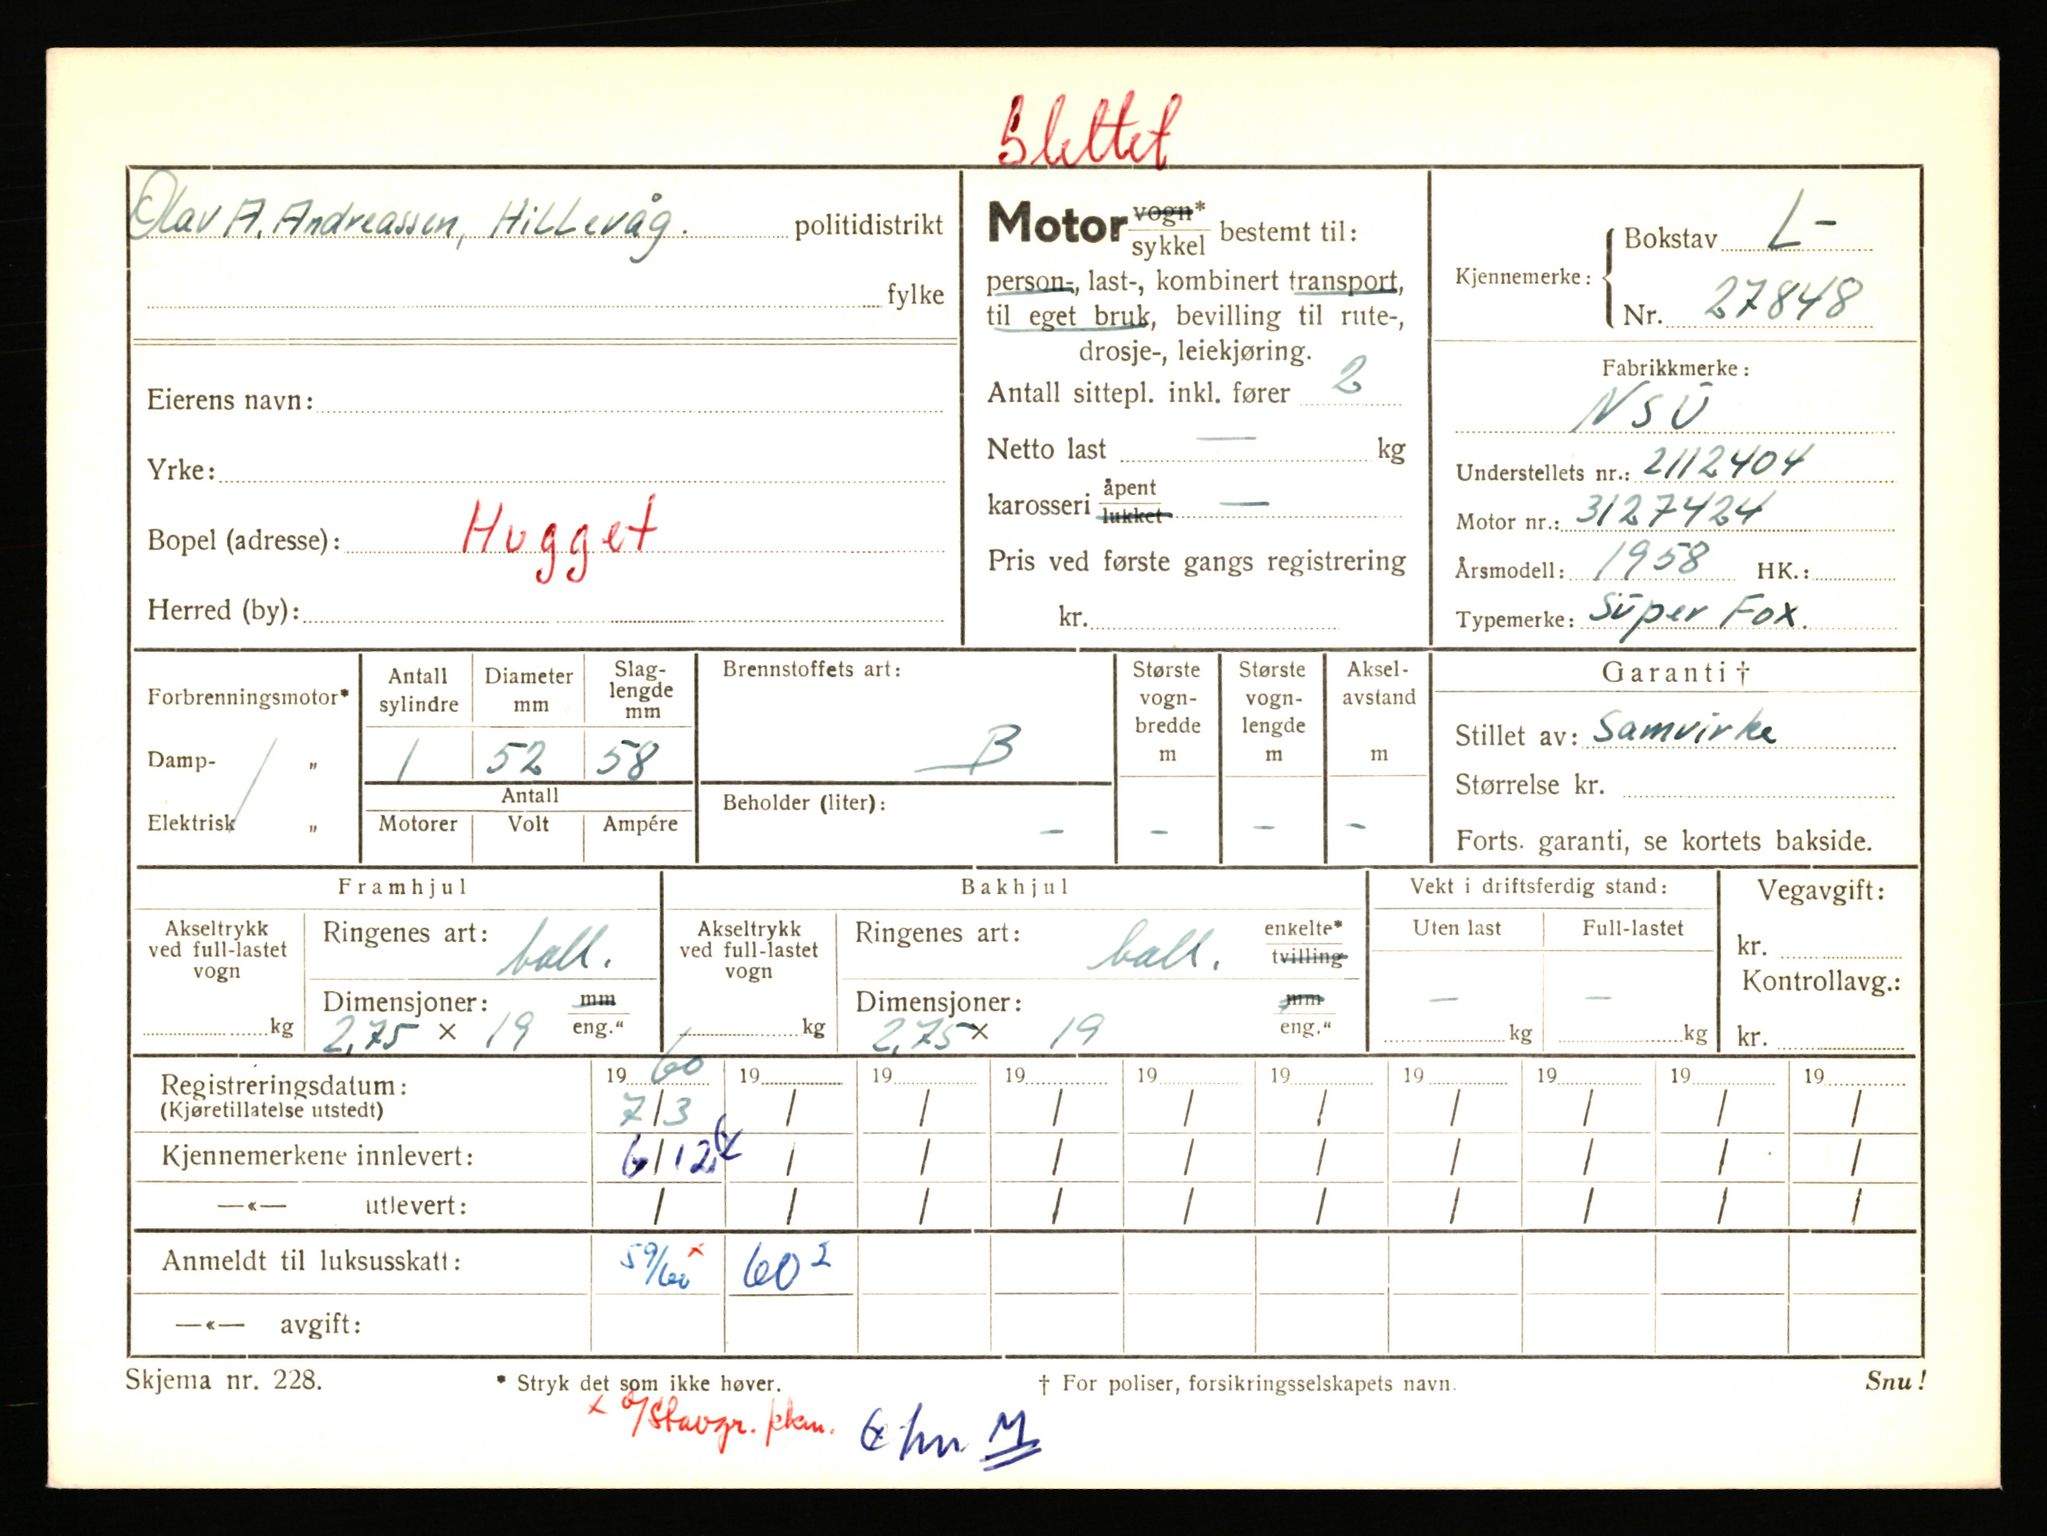 Slettet
Olav A. Andreassen, Hillevåg. politidistrikt
fylke
Eierens navn:
Yrke:
Bopel (adresse): Hugget
Herred (by):
Motor vogn* sykkel bestemt til:
person-, last-, kombinert transport,
til eget bruk, bevilling til rute-,
drosje-, leiekjøring.
Antall sittepl. inkl. fører 2
Netto last — kg
karosseri åpent lukket —
Pris ved første gangs registrering
kr.
Kjennemerke: Bokstav L-
Nr. 27848
Fabrikkmerke:
NSU
Understellets nr.: 2112404
Motor nr.: 3127424
Årsmodell: 1958 HK.:
Typemerke: Super Fox.
Forbrenningsmotor*
Damp- „
Elektrisk „
Antall sylindre
Diameter mm
Slag-lengde mm
1 52 58
Antall
Motorer Volt Ampére
Brennstoffets art:
B
Beholder (liter): –
Største vogn-bredde m
–
Største vogn-lengde m
–
Aksel-avstand m
–
Garanti †
Stillet av: Samvirke
Størrelse kr.
Forts. garanti, se kortets bakside.
Framhjul
Akseltrykk ved full-lastet vogn
kg
Ringenes art: ball.
Dimensjoner: mm eng."
2,75 × 19
Bakhjul
Akseltrykk ved full-lastet vogn
kg
Ringenes art: ball. enkelte* tvilling
Dimensjoner: mm eng."
2,75 × 19
Vekt i driftsferdig stand:
Uten last Full-lastet
– –
kg kg
Vegavgift:
kr.
Kontrollavg.:
kr.
Registreringsdatum: 19 60 19 19 19 19 19 19 19 19 19
(Kjøretillatelse utstedt) 7/3 / / / / / / / / /
Kjennemerkene innlevert: 6/12 / / / / / / / / /
—«— utlevert: / / / / / / / / / /
Anmeldt til luksusskatt: 59/60 × 60 2
—«— avgift:
Skjema nr. 228. * Stryk det som ikke høver. † For poliser, forsikringsselskapets navn. Snu!
× Stavgr.
M